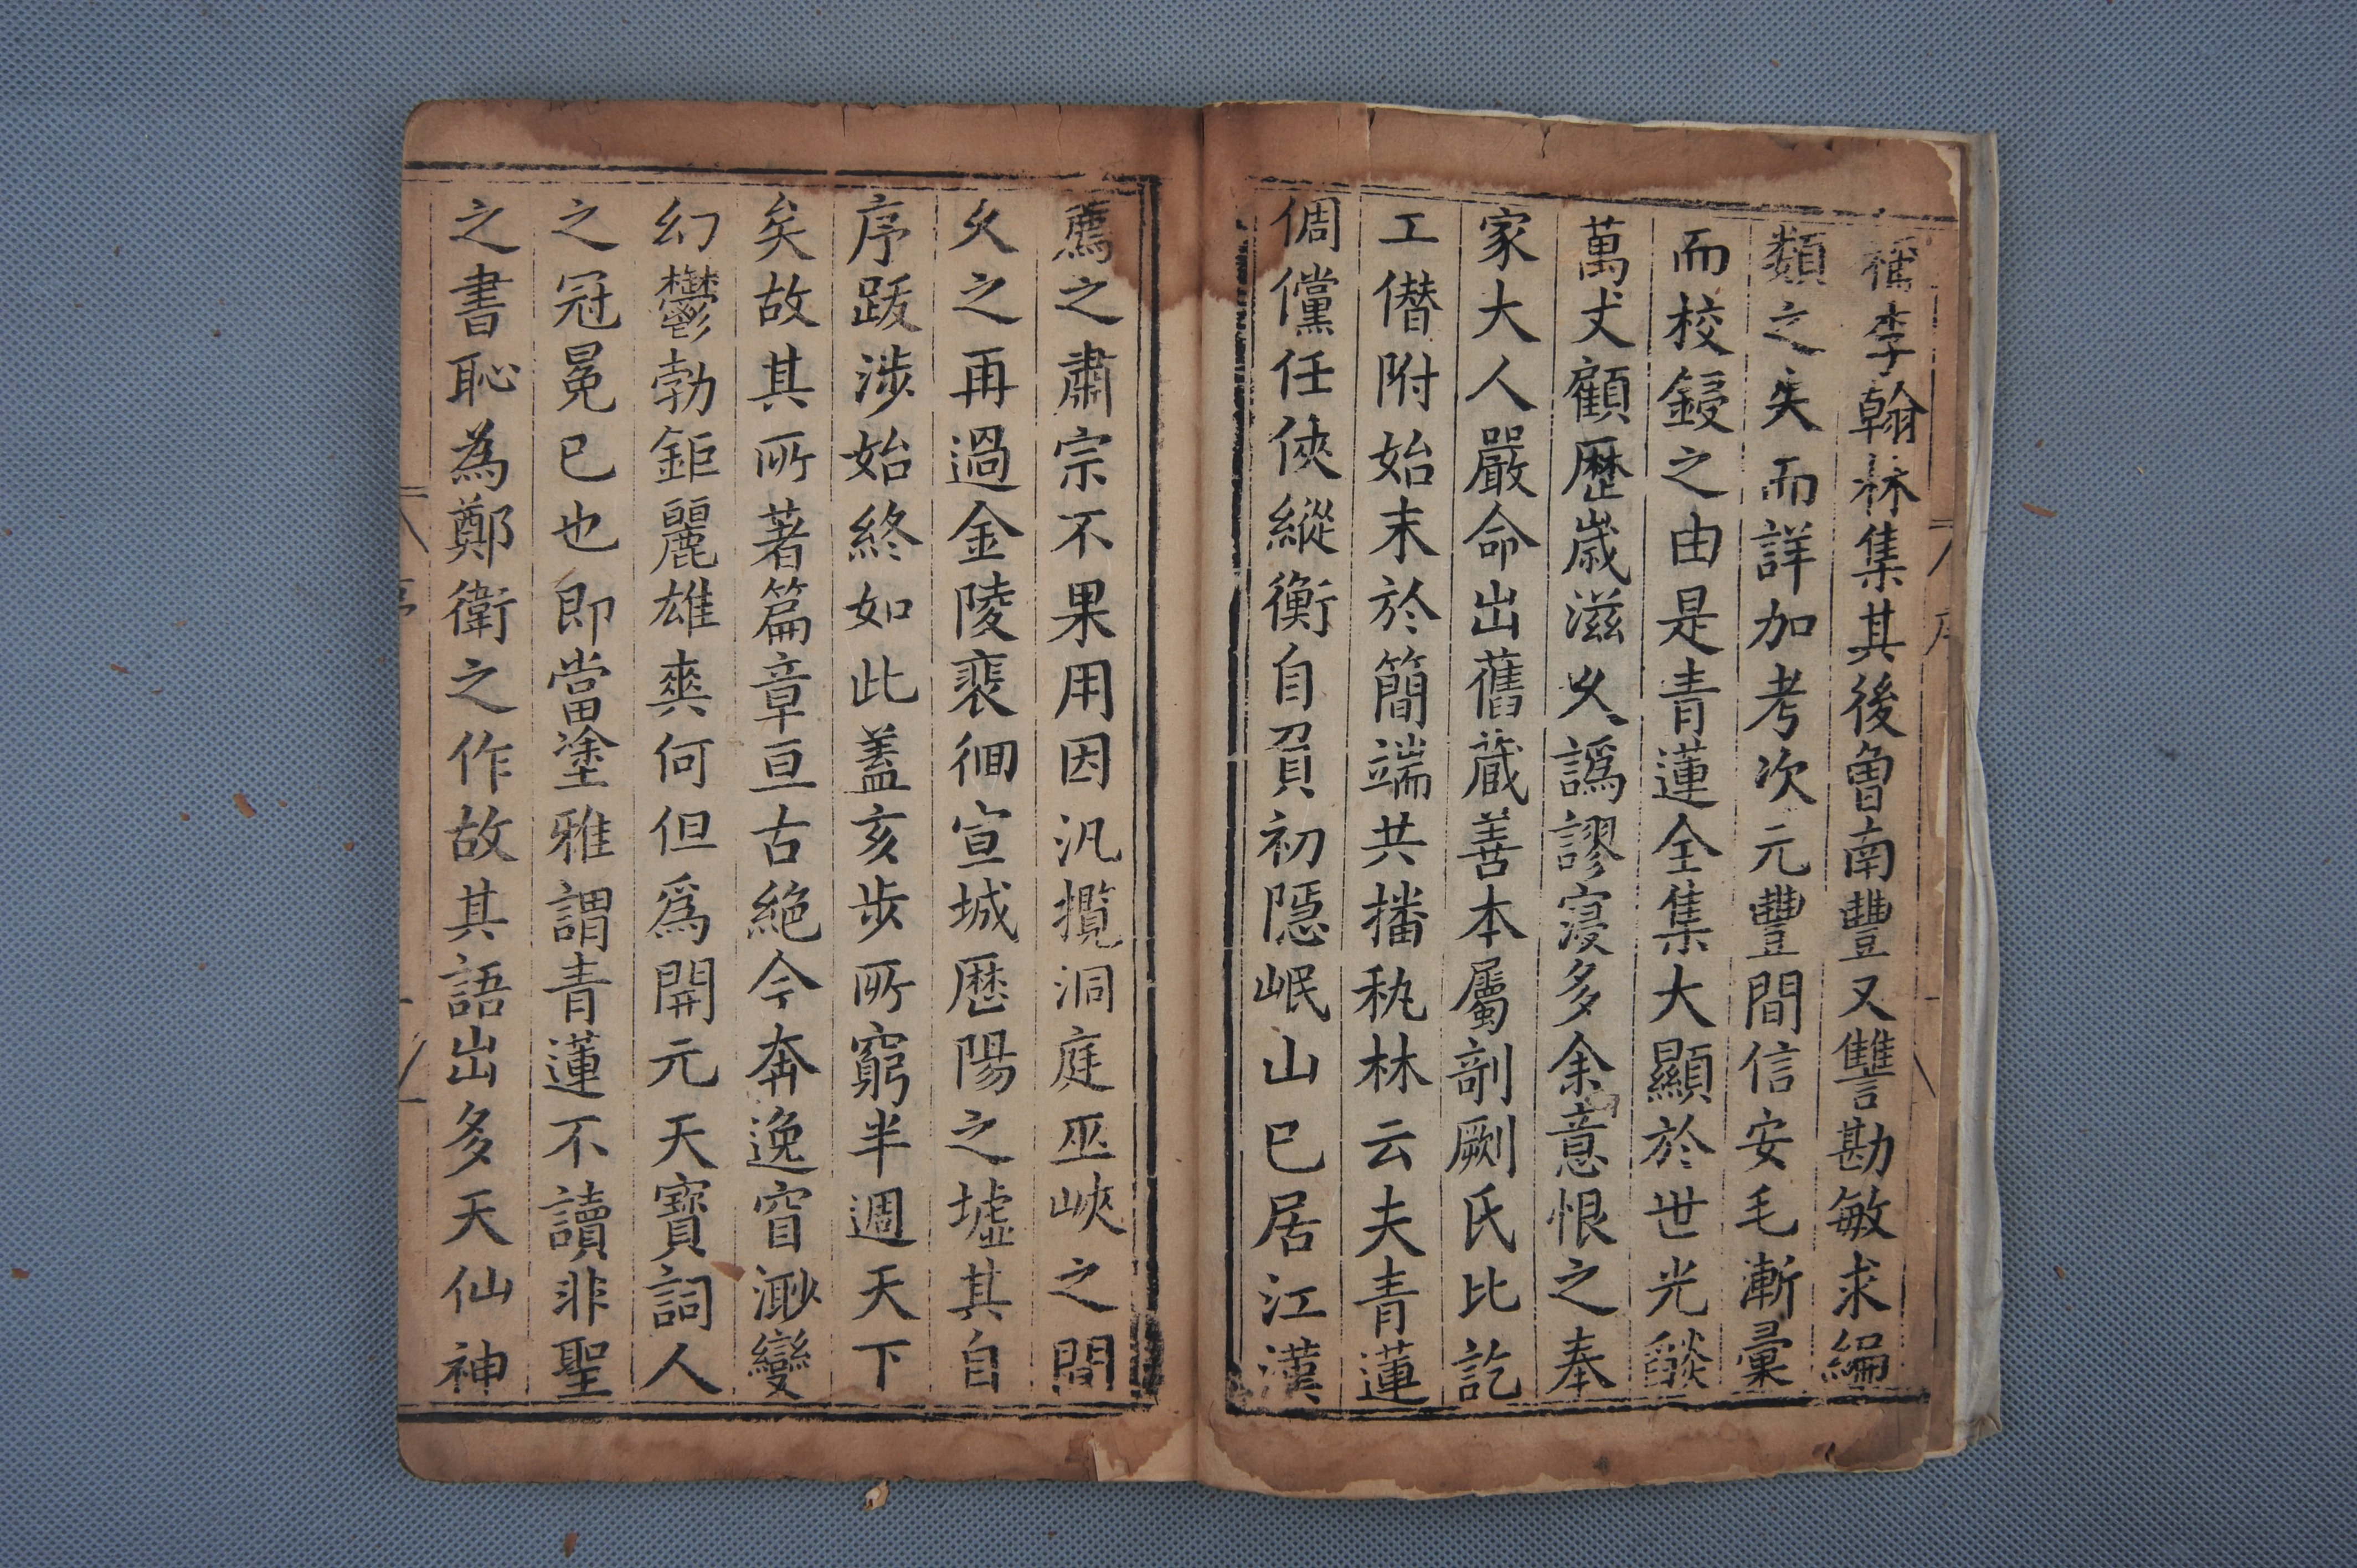 舊李翰林集其後曾南豐又讐勘敏求編
類之失而詳加考次元豐間信安毛漸彚
而校鋟之由是青蓮全集大顯於世光燄
萬丈顧歴歳滋久譌謬寖多余意恨之奉
家大人嚴命出舊蔵善本屬剞劂氏比訖
工僣附始末於簡端共播秇林云夫青蓮
倜儻任俠縱衡自負初隠岷山已居江漢
薦之肅宗不果用因汎攬洞庭巫峽之間
久之再過金陵裴徊宣城歴陽之墟其自
序跋涉始終如此蓋亥步所窮半週天下
矣故其所著篇章亘古絶今奔逸窅渺變
幻鬱勃鉅麗雄爽何但爲開元天寶詞人
之冠冕已也即當塗雅謂青蓮不讀非聖
之書恥為鄭衛之作故其語出多天仙神
序